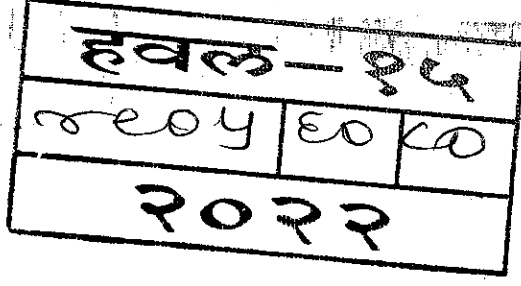 हवल-१५
४९०५ ६० ८०
२०२२